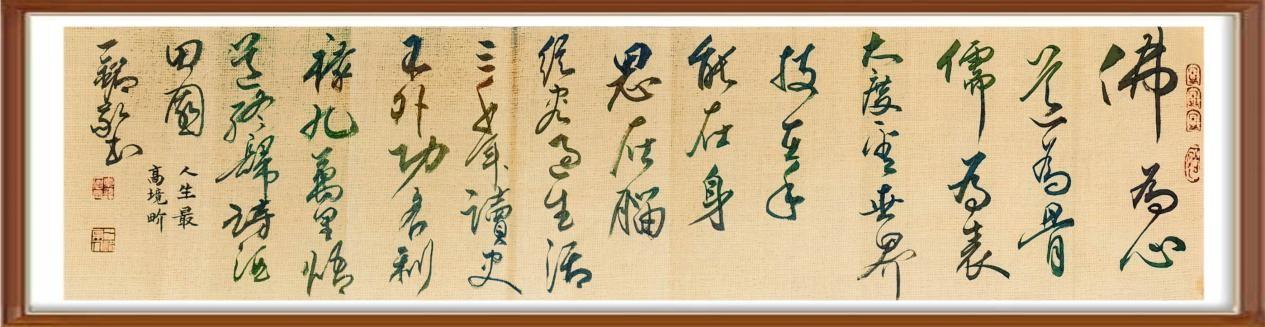 佛為心
道為骨
儒為表
大度看世界
技在手
能在身
思在腦
從容過生活
三千年讀史
不外功名利
祿九萬里悟
道終歸詩酒
田園
人生最
高境畍